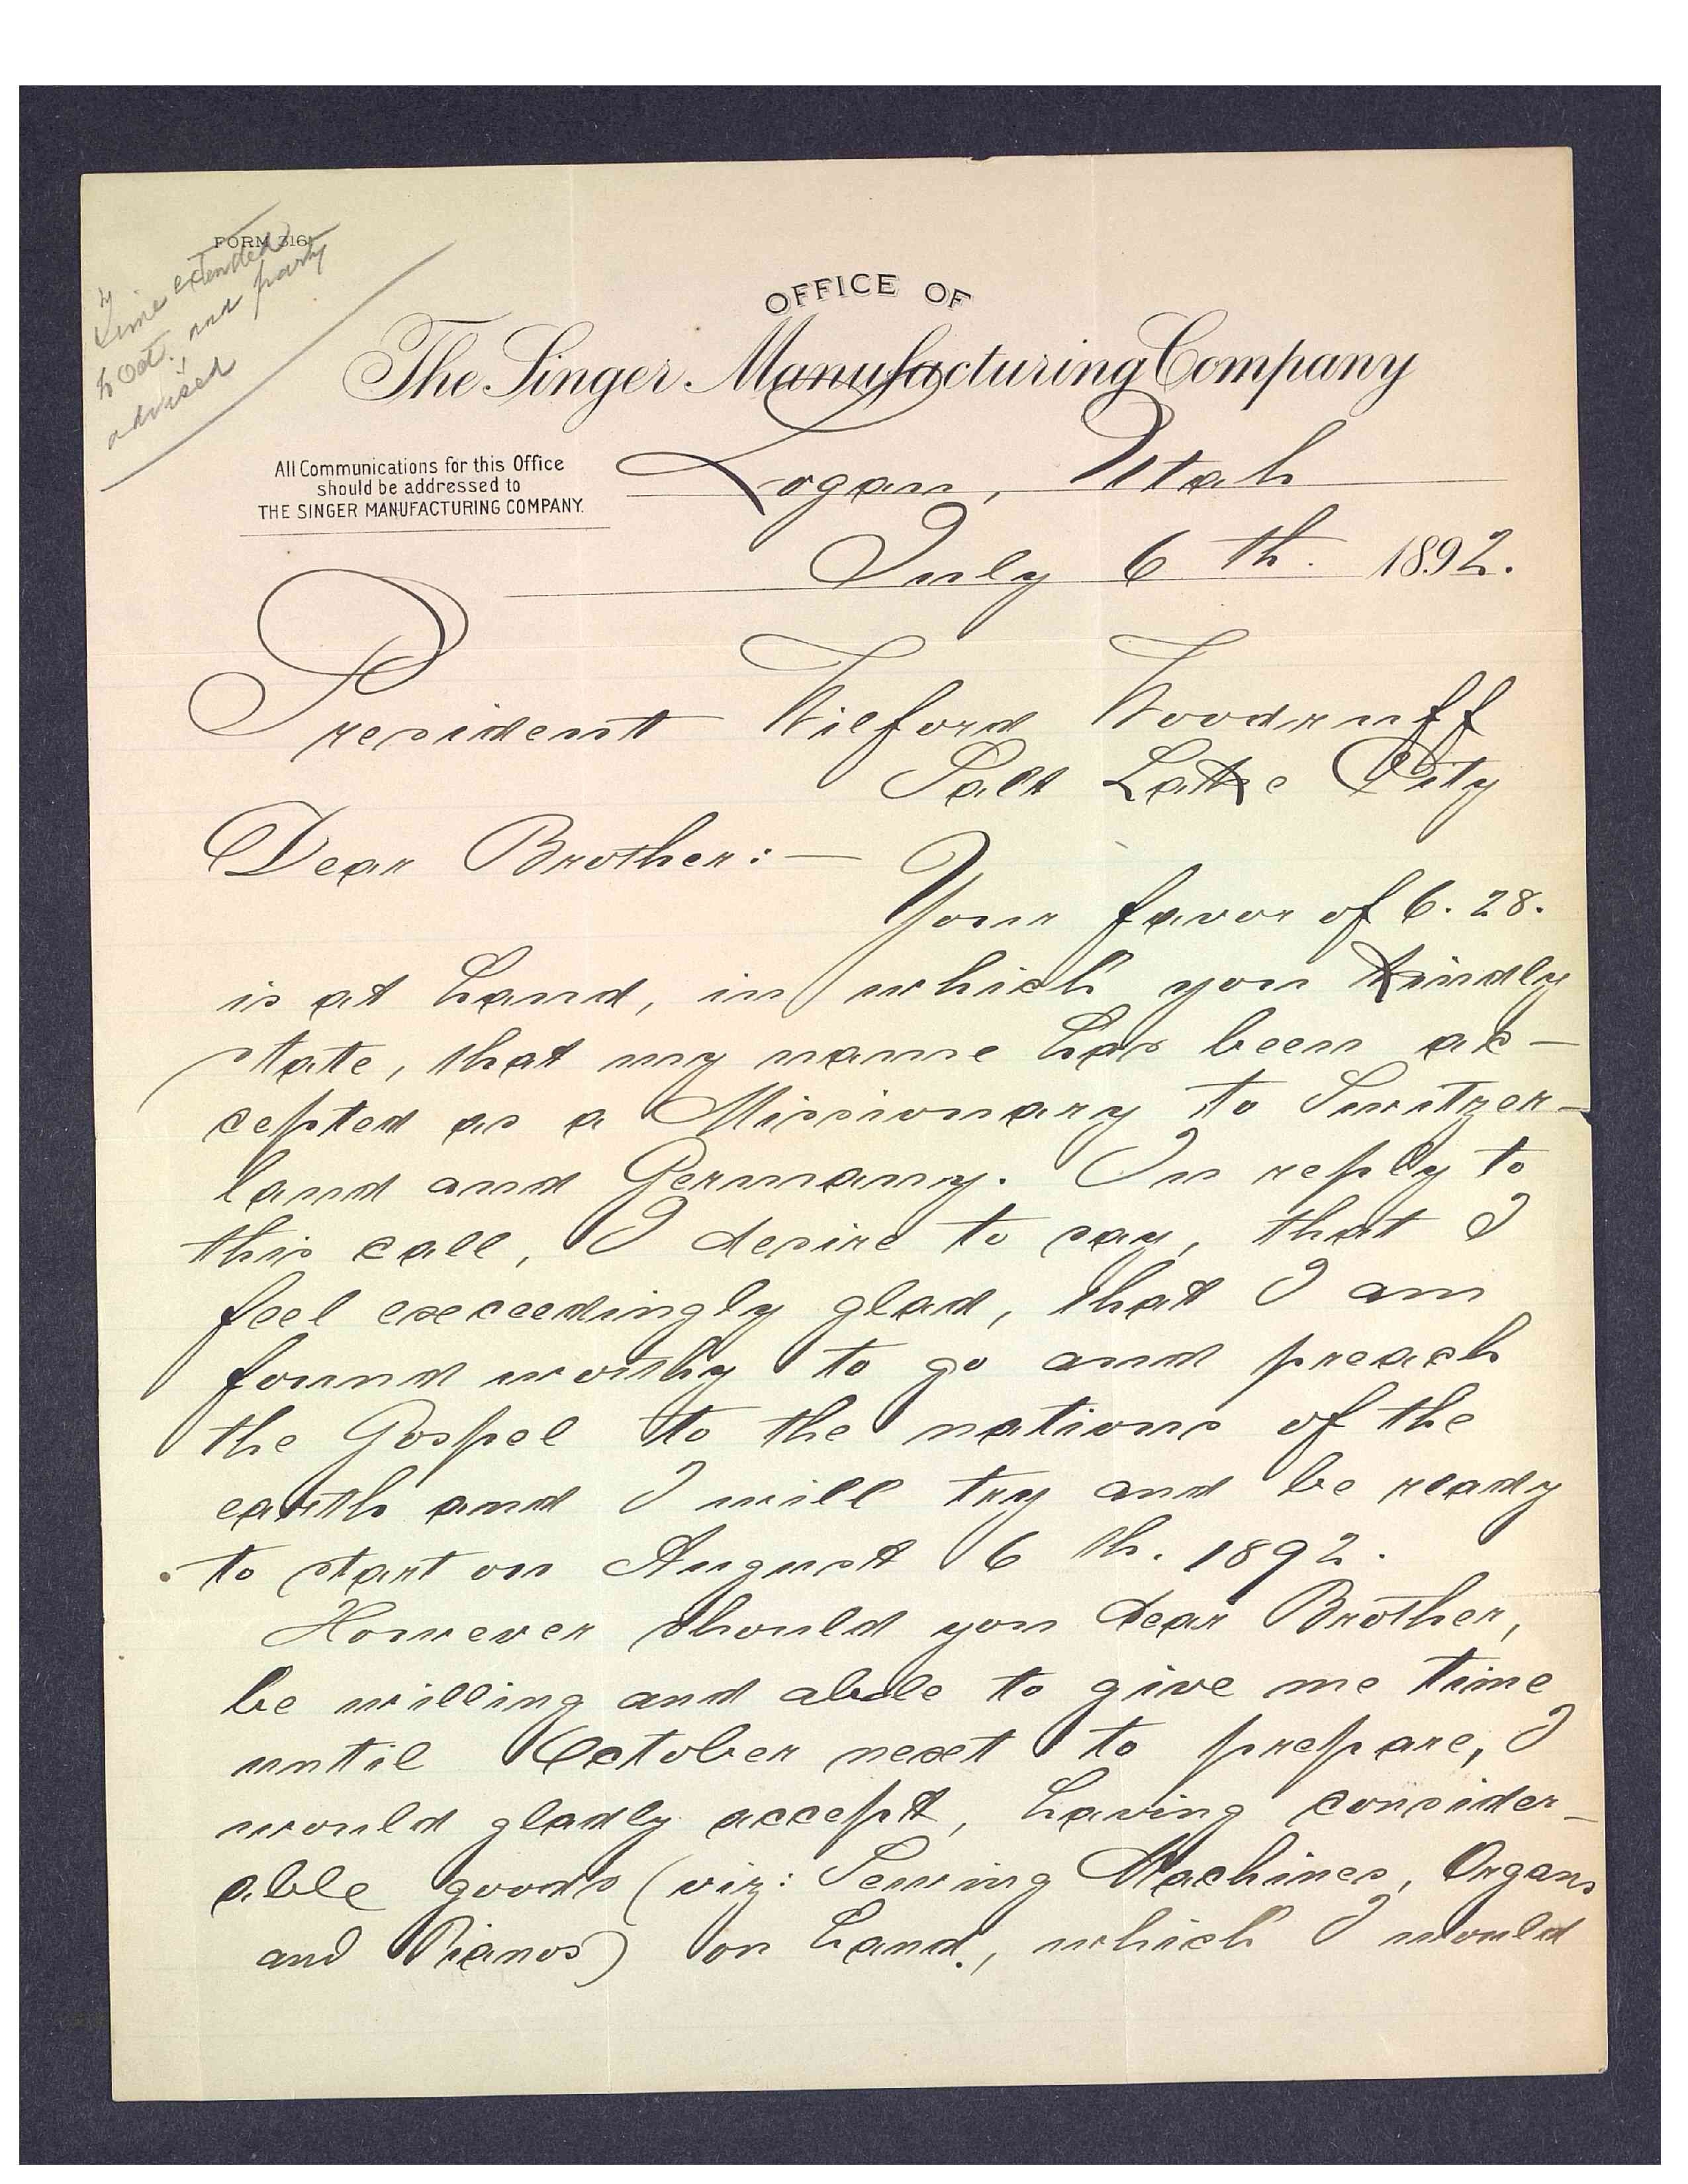 FORM 316
Time extended
to Oct. and party
advised
OFFICE OF
The Singer Manufacturing Company
All Communications for this Office
should be addressed to
THE SINGER MANUFACTURING COMPANY.
Logan, Utah
July 6 th. 1892.
President Wilford Woodruff
Salt Lake City
Dear Brother:—
Your favor of 6. 28.
is at hand, in which you kindly
state, that my name has been ac-
cepted as a Missionary to Switzer-
land and Germany. In reply to
this call, I desire to say, that I
feel exceedingly glad, that I am
found worthy to go and preach
the Gospel to the nations of the
earth and I will try and be ready
to start on August 6 th. 1892.
However should you dear Brother,
be willing and able to give me time
until October next to prepare, I
would gladly accept, having consider-
able goods (viz: Sewing Machines, Organs
and Pianos) on hand, which I would